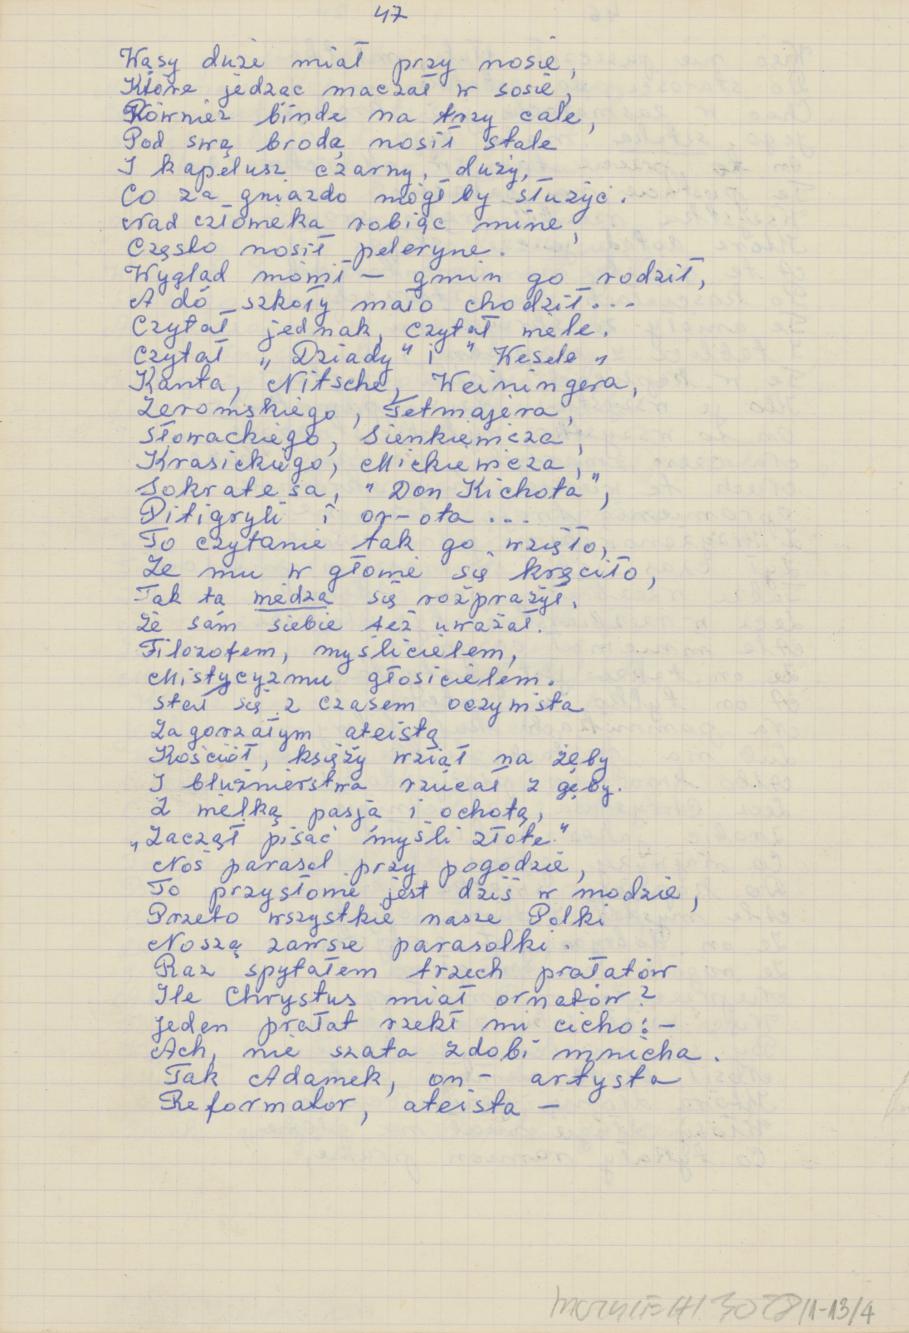 47
Wąsy duże miał przy nosie,
Które jedząc maczał w sosie,
Również binde na trzy cale,
Pod swą brodą nosił stale
I kapelusz czarny, duży,
Co za gniazdo mógł by służyć.
Nad człowieka robiąc minę,
Często nosił pelerynę.
Wygląd mówił – gmin go rodził,
A do szkoły mało chodził...
Czytał jednak, czytał wiele.
Czytał „Dziady" i "Wesele„
Kanta, Nitsche, Weiningera,
Żeromskiego, Tetmajera,
Słowackiego, Sienkiewicza,
Krasickiego, Mickiewicza,
Sokratesa, "Don Kichota",
Pitigryli i or-ota...
To czytanie tak go wzięło,
Że mu w głowie się kręciło,
Tak tą wiedzą się rozprażył,
Że sam siebie też uważał.
Filozofem, myślicielem,
Mistycyzmu głosicielem.
Stał się z czasem oczywista
Zagorzałym ateistą
Kościół, księży wziął na zęby
I bluźnierstwa rzucał z gęby.
Z wielką pasją i ochotą,
„Zaczął pisać myśli złote."
Noś parasol przy pogodzie,
To przysłowie jest dziś w modzie,
Przeto wszystkie nasze Polki
Noszą zawsze parasolki
Raz spytałem trzech prałatów
Ile Chrystus miał ornatów?
Jeden prałat rzekł mi cicho:–
Ach, nie szata zdobi mnicha.
Tak Adamek, on – artysta
Reformator, ateista –
1-13/4